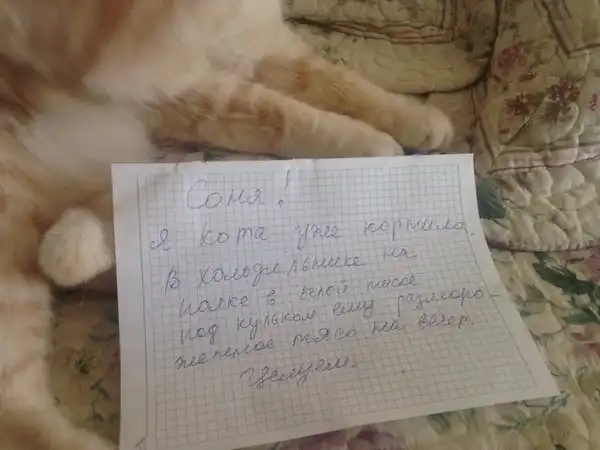 Соня!
Я кота уже кормила.
В холодильнике на
полке в белой миске
под кульком ему разморо-
женное мясо на вечер.
Целуем.